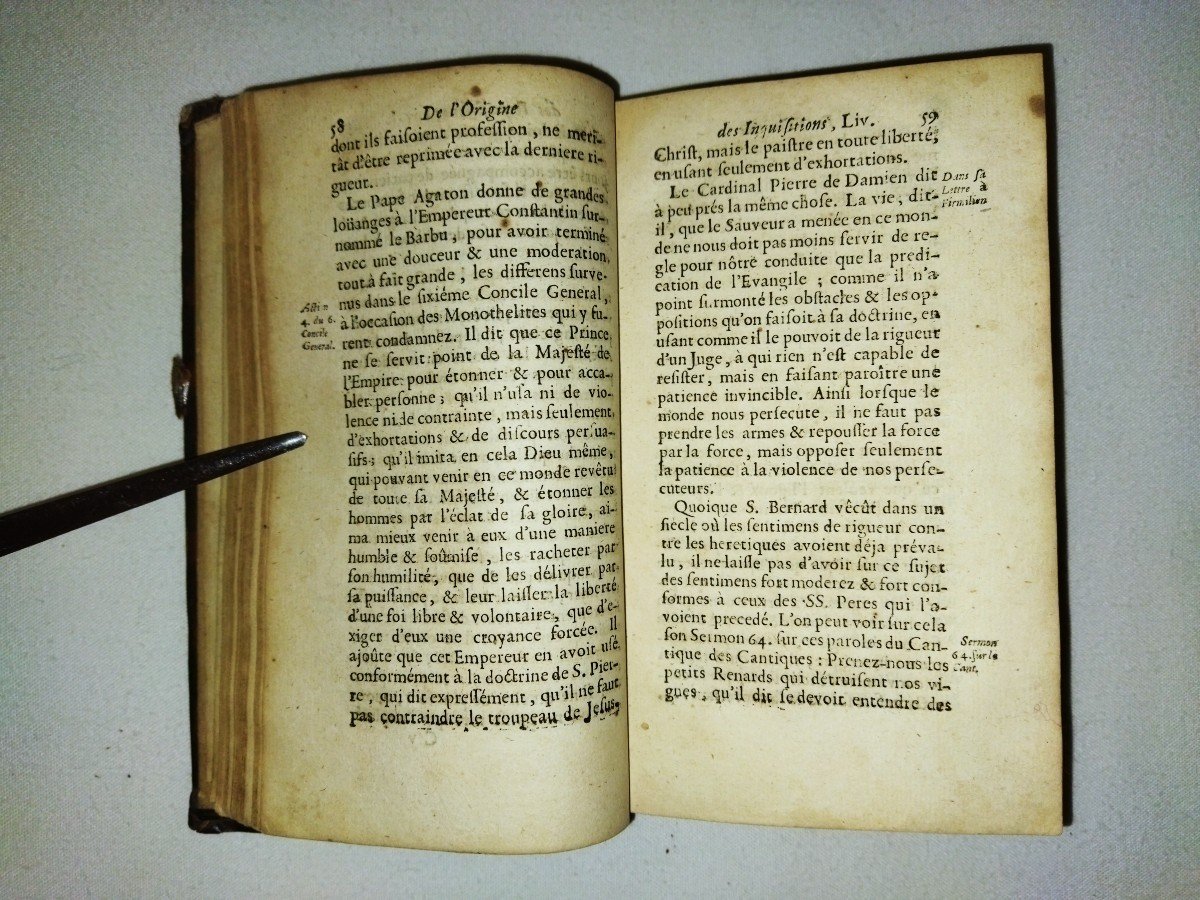 58 De l'Origine
dont ils faiſoient profeſſion, ne meri-
tât d'être reprimée avec la derniere ri-
gueur.
Le Pape Agaton donne de grandes
loüanges à l'Empereur Conſtantin ſur-
nommé le Barbu, pour avoir terminé
avec une douceur & une moderation
tout à fait grande, les differens ſurve-
nus dans le ſixiéme Concile General,
à l'occaſion des Monothelites qui y fu-
rent condamnez. Il dit que ce Prince
ne ſe ſervit point de la Majeſté de
l'Empire pour étonner & pour acca-
bler perſonne; qu'il n'uſa ni de vio-
lence ni de contrainte, mais ſeulement
d'exhortations & de diſcours perſua-
ſifs; qu'il imita en cela Dieu même,
qui pouvant venir en ce monde revêtu
de toute ſa Majeſté, & étonner les
hommes par l'éclat de ſa gloire, ai-
ma mieux venir à eux d'une maniere
humble & ſoûmiſe, les racheter par
ſon humilité, que de les délivrer par
ſa puiſſance, & leur laiſſer la liberté
d'une foi libre & volontaire, que d'e-
xiger d'eux une croyance forcée. Il
ajoûte que cet Empereur en avoit uſé
conformément à la doctrine de S. Pier-
re, qui dit expreſſément, qu'il ne faut
pas contraindre le troupeau de Jeſus-
4. du 6.
Concile
General.
des Inquiſitions, Liv. 59
Chriſt, mais le paiſtre en toute liberté,
en uſant ſeulement d'exhortations.
Le Cardinal Pierre de Damien dit
à peu prés la même choſe. La vie, dit-
il, que le Sauveur a menée en ce mon-
de ne nous doit pas moins ſervir de re-
gle pour nôtre conduite que la predi-
cation de l'Evangile; comme il n'a
point ſurmonté les obſtacles & les op-
poſitions qu'on faiſoit à ſa doctrine, en
uſant comme il le pouvoit de la rigueur
d'un Juge, à qui rien n'eſt capable de
reſiſter, mais en faiſant paroître une
patience invincible. Ainſi lorſque le
monde nous perſecute, il ne faut pas
prendre les armes & repouſſer la force
par la force, mais oppoſer ſeulement
la patience à la violence de nos perſe-
cuteurs.
Quoique S. Bernard vêcût dans un
ſiècle où les ſentimens de rigueur con-
tre les heretiques avoient déja préva-
lu, il ne laiſſe pas d'avoir ſur ce ſujet
des ſentimens fort moderez & fort con-
formes à ceux des SS. Peres qui l'a-
voient precedé. L'on peut voir ſur cela
ſon Sermon 64. ſur ces paroles du Can-
tique des Cantiques: Prenez-nous les
petits Renards qui détruiſent nos vi-
gnes, qu'il dit ſe devoit entendre des
Dans ſa
Lettre à
Firmilien
Sermon
64. ſur le
Cant.